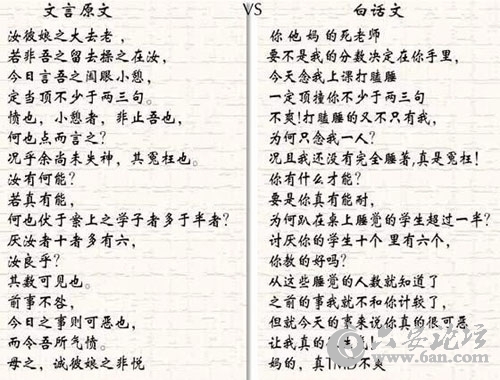 文言原文
汝彼娘之大去老，
若非吾之留去操之在汝，
今日言吾之闔眼小憩，
定当顶不少于两三句。
愤也，小憩者，非止吾也，
何也点而言之？
况乎余尚未失神，其冤枉也。
汝有何能？
若真有能，
何也伏于案上之学子者多于半者？
厌汝者十者多有六，
汝良乎？
其数可见也。
前事不咎，
今日之事则可恶也，
而令吾所气愤。
母之，诚彼娘之非悦
VS
白话文
你他妈的死老师
要不是我的分数决定在你手里，
今天念我上课打瞌睡
一定顶撞你不少于两三句
不爽！打瞌睡的又不只有我，
为何只念我一人？
况且我还没有完全睡著，真是冤枉！
你有什么才能？
要是你真有能耐，
为何趴在桌上睡觉的学生超过一半？
讨厌你的学生十个 里有六个，
你教的好吗？
从这些睡觉的人数就知道了
之前的事我就不和你计较了，
但就今天的事来说你真的很可恶
让我真的生气！
妈的，真TMD不爽
六安论坛
www.6an.com